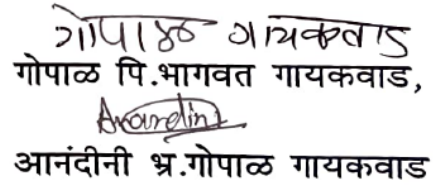 गोपाळ गायकवाड
गोपाळ पि.भागवत गायकवाड,
Anandini
आनंदीनी भ्र.गोपाळ गायकवाड